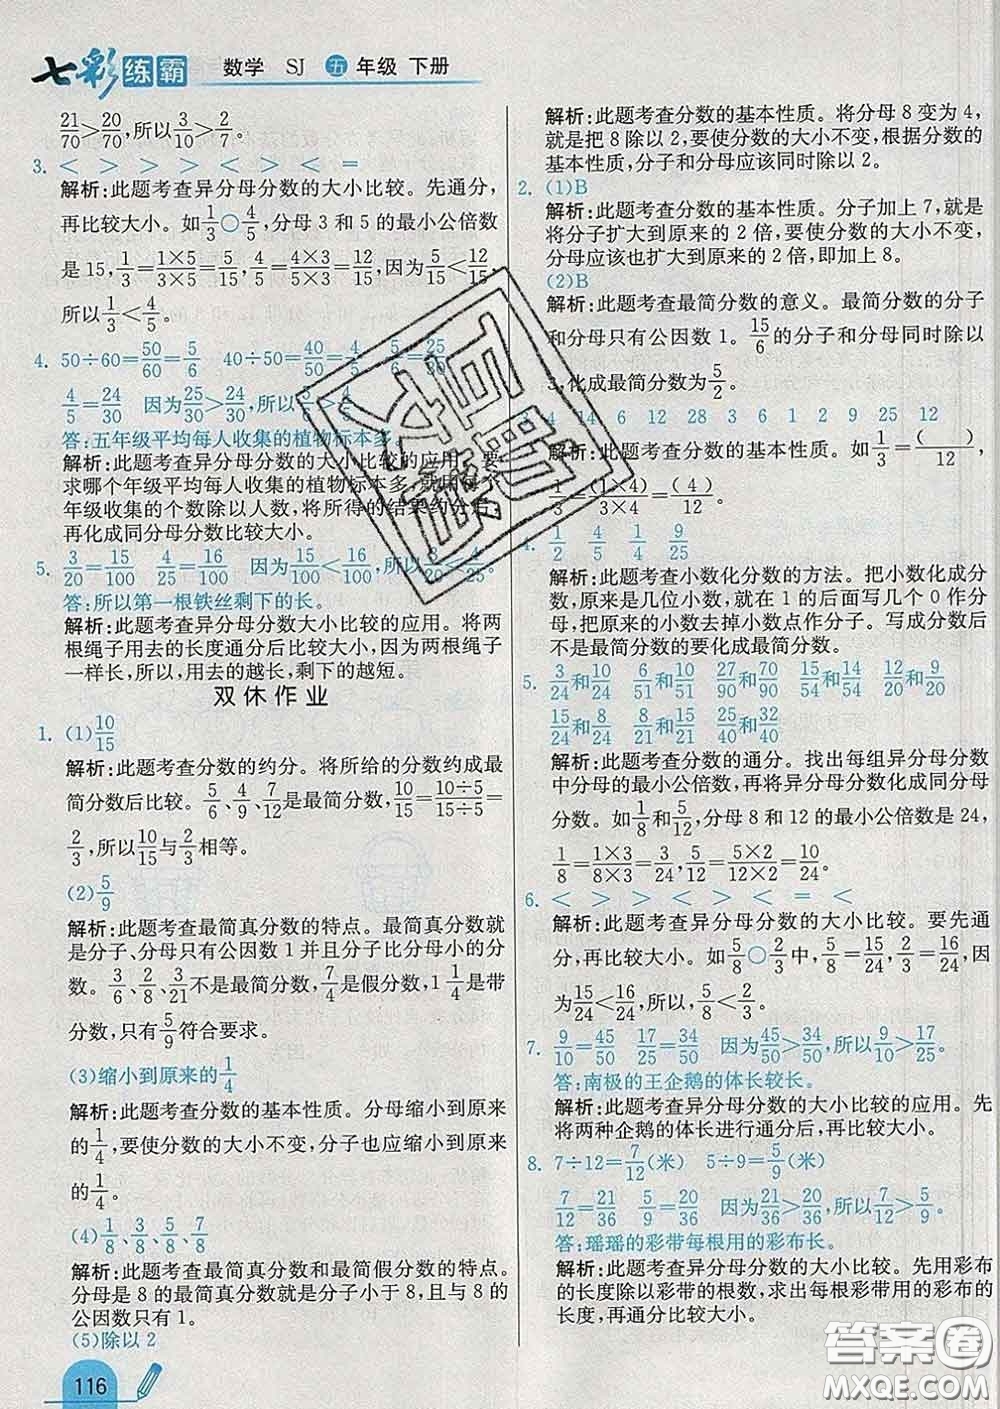 七彩练霸 数学 SJ 五年级 下册
21/70>20/70,所以3/10>2/7。
3. < > > > < > < =
解析:此题考查异分母分数的大小比较。先通分,
再比较大小。如1/3○4/5,分母 3 和 5 的最小公倍数
是 15,1/3=1×5/3×5=5/15,4/5=4×3/5×3=12/15,因为5/15<12/15,
所以1/3<4/5。
4. 50÷60=50/60=5/6 40÷50=40/50=4/5 5/6=25/30
4/5=24/30 因为25/30>24/30,所以5/6>4/5
答:五年级平均每人收集的植物标本多。
解析:此题考查异分母分数的大小比较的应用。要
求哪个年级平均每人收集的植物标本多,就用每个
年级收集的个数除以人数,将所得的结果约分后,
再化成同分母分数比较大小。
5. 3/20=15/100 4/25=16/100 因为15/100<16/100,所以3/20<4/25。
答:所以第一根铁丝剩下的长。
解析:此题考查异分母分数大小比较的应用。将两
根绳子用去的长度通分后比较大小,因为两根绳子
一样长,所以,用去的越长,剩下的越短。
双休作业
1. (1)10/15
解析:此题考查分数的约分。将所给的分数约成最
简分数后比较。5/6、4/9、7/12是最简分数,10/15=10÷5/15÷5=
2/3,所以10/15与2/3相等。
(2)5/9
解析:此题考查最简真分数的特点。最简真分数就
是分子、分母只有公因数 1 并且分子比分母小的分
数。3/6、2/8、3/21不是最简分数,7/4是假分数,1 1/4是带
分数,只有5/9符合要求。
(3)缩小到原来的1/4
解析:此题考查分数的基本性质。分母缩小到原来
的1/4,要使分数的大小不变,分子也应缩小到原来
的1/4。
(4)1/8、3/8、5/8、7/8
解析:此题考查最简真分数和最简假分数的特点。
分母是 8 的最简真分数就是分子小于 8,且与 8 的
公因数只有 1。
(5)除以 2
116
解析:此题考查分数的基本性质。将分母 8 变为 4,
就是把 8 除以 2,要使分数的大小不变,根据分数的
基本性质,分子和分母应该同时除以 2。
2. (1)B
解析:此题考查分数的基本性质。分子加上 7,就是
将分子扩大到原来的 2 倍,要使分数的大小不变,
分母应该也扩大到原来的 2 倍,即加上 8。
(2)B
解析:此题考查最简分数的意义。最简分数的分子
和分母只有公因数 1。15/6的分子和分母同时除以
3,化成最简分数为5/2。
3. 4 14 16 12 28 3 6 1 2 9 25 12
解析:此题考查分数的基本性质。如1/3=( )/12,
1/3=(1×4)/3×4=(4)/12。
4. 1/2 4/5 1/4 9/25
解析:此题考查小数化分数的方法。把小数化成分
数,原来是几位小数,就在 1 的后面写几个 0 作分
母,把原来的小数去掉小数点作分子。写成分数后
不是最简分数的要化成最简分数。
5. 3/24和10/24 6/51和10/51 27/90和70/90 15/20和14/20 12/20和9/20
15/24和8/24 8/21和6/21 25/40和32/40
解析:此题考查分数的通分。找出每组异分母分数
中分母的最小公倍数,再将异分母分数化成同分母
分数。如1/8和5/12,分母 8 和 12 的最小公倍数是 24,
1/8=1×3/8×3=3/24,5/12=5×2/12×2=10/24。
6. < > > > < = < <
解析:此题考查异分母分数的大小比较。要先通
分,再比较大小。如5/8○2/3中,5/8=15/24,2/3=16/24,因
为15/24<16/24,所以,5/8<2/3。
7. 9/10=45/50 17/25=34/50 因为45/50>34/50,所以9/10>17/25。
答:南极的王企鹅的体长较长。
解析:此题考查异分母分数的大小比较的应用。先
将两种企鹅的体长进行通分后,再比较大小。
8. 7÷12=7/12(米) 5÷9=5/9(米)
7/12=21/36 5/9=20/36 因为21/36>20/36,所以7/12>5/9。
答:瑶瑶的彩带每根用的彩布长。
解析:此题考查异分母分数的大小比较。先用彩布
的长度除以彩带的根数,求出每根彩带用的彩布的
长度,再通分比较大小。
答案圈
MXQE.COM